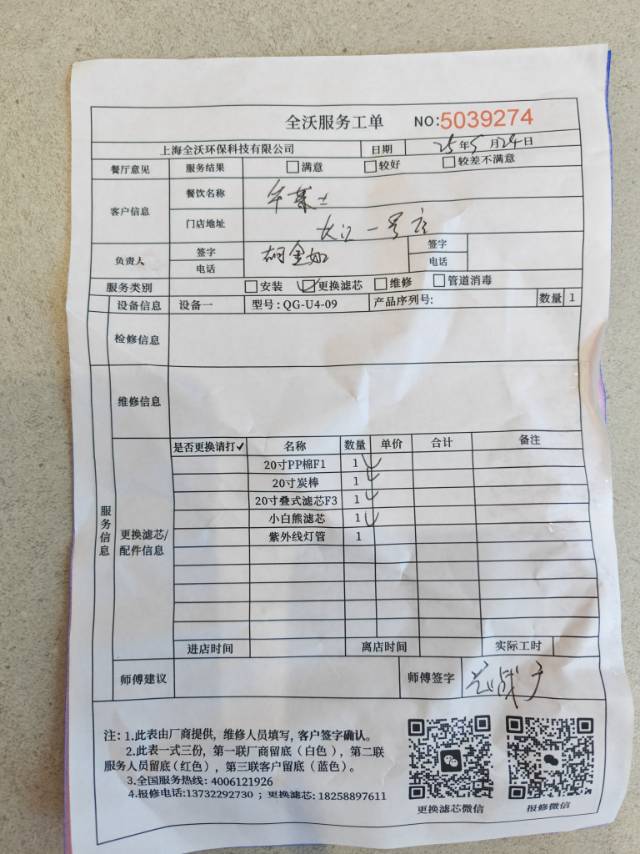 全沃服务工单 NO:5039274
上海全沃环保科技有限公司 日期 25年5月24日
餐厅意见 服务结果 □满意 □较好 □较差不满意
客户信息 餐饮名称
门店地址 长江一号店
负责人 签字 胡金如 签字
电话 电话
服务类别 □安装 ☑更换滤芯 □维修 □管道消毒
设备信息 设备一 型号:QG-U4-09 产品序列号: 数量 1
检修信息
维修信息
服务信息
更换滤芯/配件信息
是否更换请打✓ 名称 数量 单价 合计 备注
20寸PP棉F1 1 ✓
20寸炭棒 1 ✓
20寸叠式滤芯F3 1 ✓
小白熊滤芯 1 ✓
紫外线灯管 1
进店时间 离店时间 实际工时
师傅建议 师傅签字
注:1.此表由厂商提供,维修人员填写,客户签字确认。
2.此表一式三份,第一联厂商留底(白色),第二联
服务人员留底(红色),第三联客户留底(蓝色)。
3.全国服务热线:4006121926
4.报修电话:13732292730;更换滤芯:18258897611
更换滤芯微信 报修微信